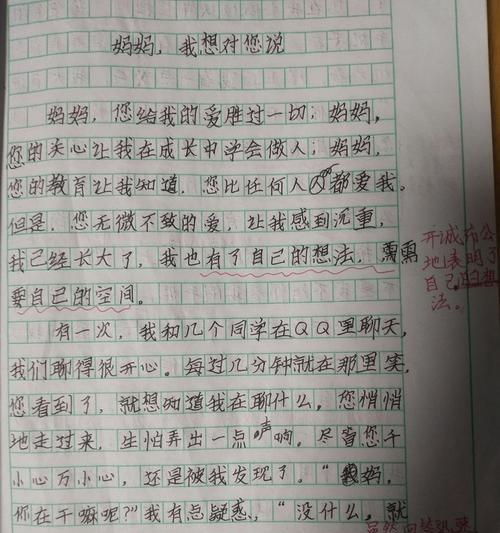 妈妈，我想对您说
妈妈，您给我的爱胜过一切；妈妈，
您的关心让我在成长中学会做人；妈妈，
您的教育让我知道，您比任何人都爱我。
但是，您无微不致的爱，让我感到沉重，
我已经长大了，我也有了自己的想法，需
要自己的空间。
开诚布公
地表明了
自己的想
法。
有一次，我和几个同学在QQ里聊天，
我们聊得很开心。每过几分钟就在那里笑，
您看到了，就想知道我在聊什么。您悄悄
地走过来，生怕弄出一点声响。尽管您千
小心万小心，还是被我发现了。“妈，
你在干嘛呢？”我有点疑惑，“没什么，就
虽然